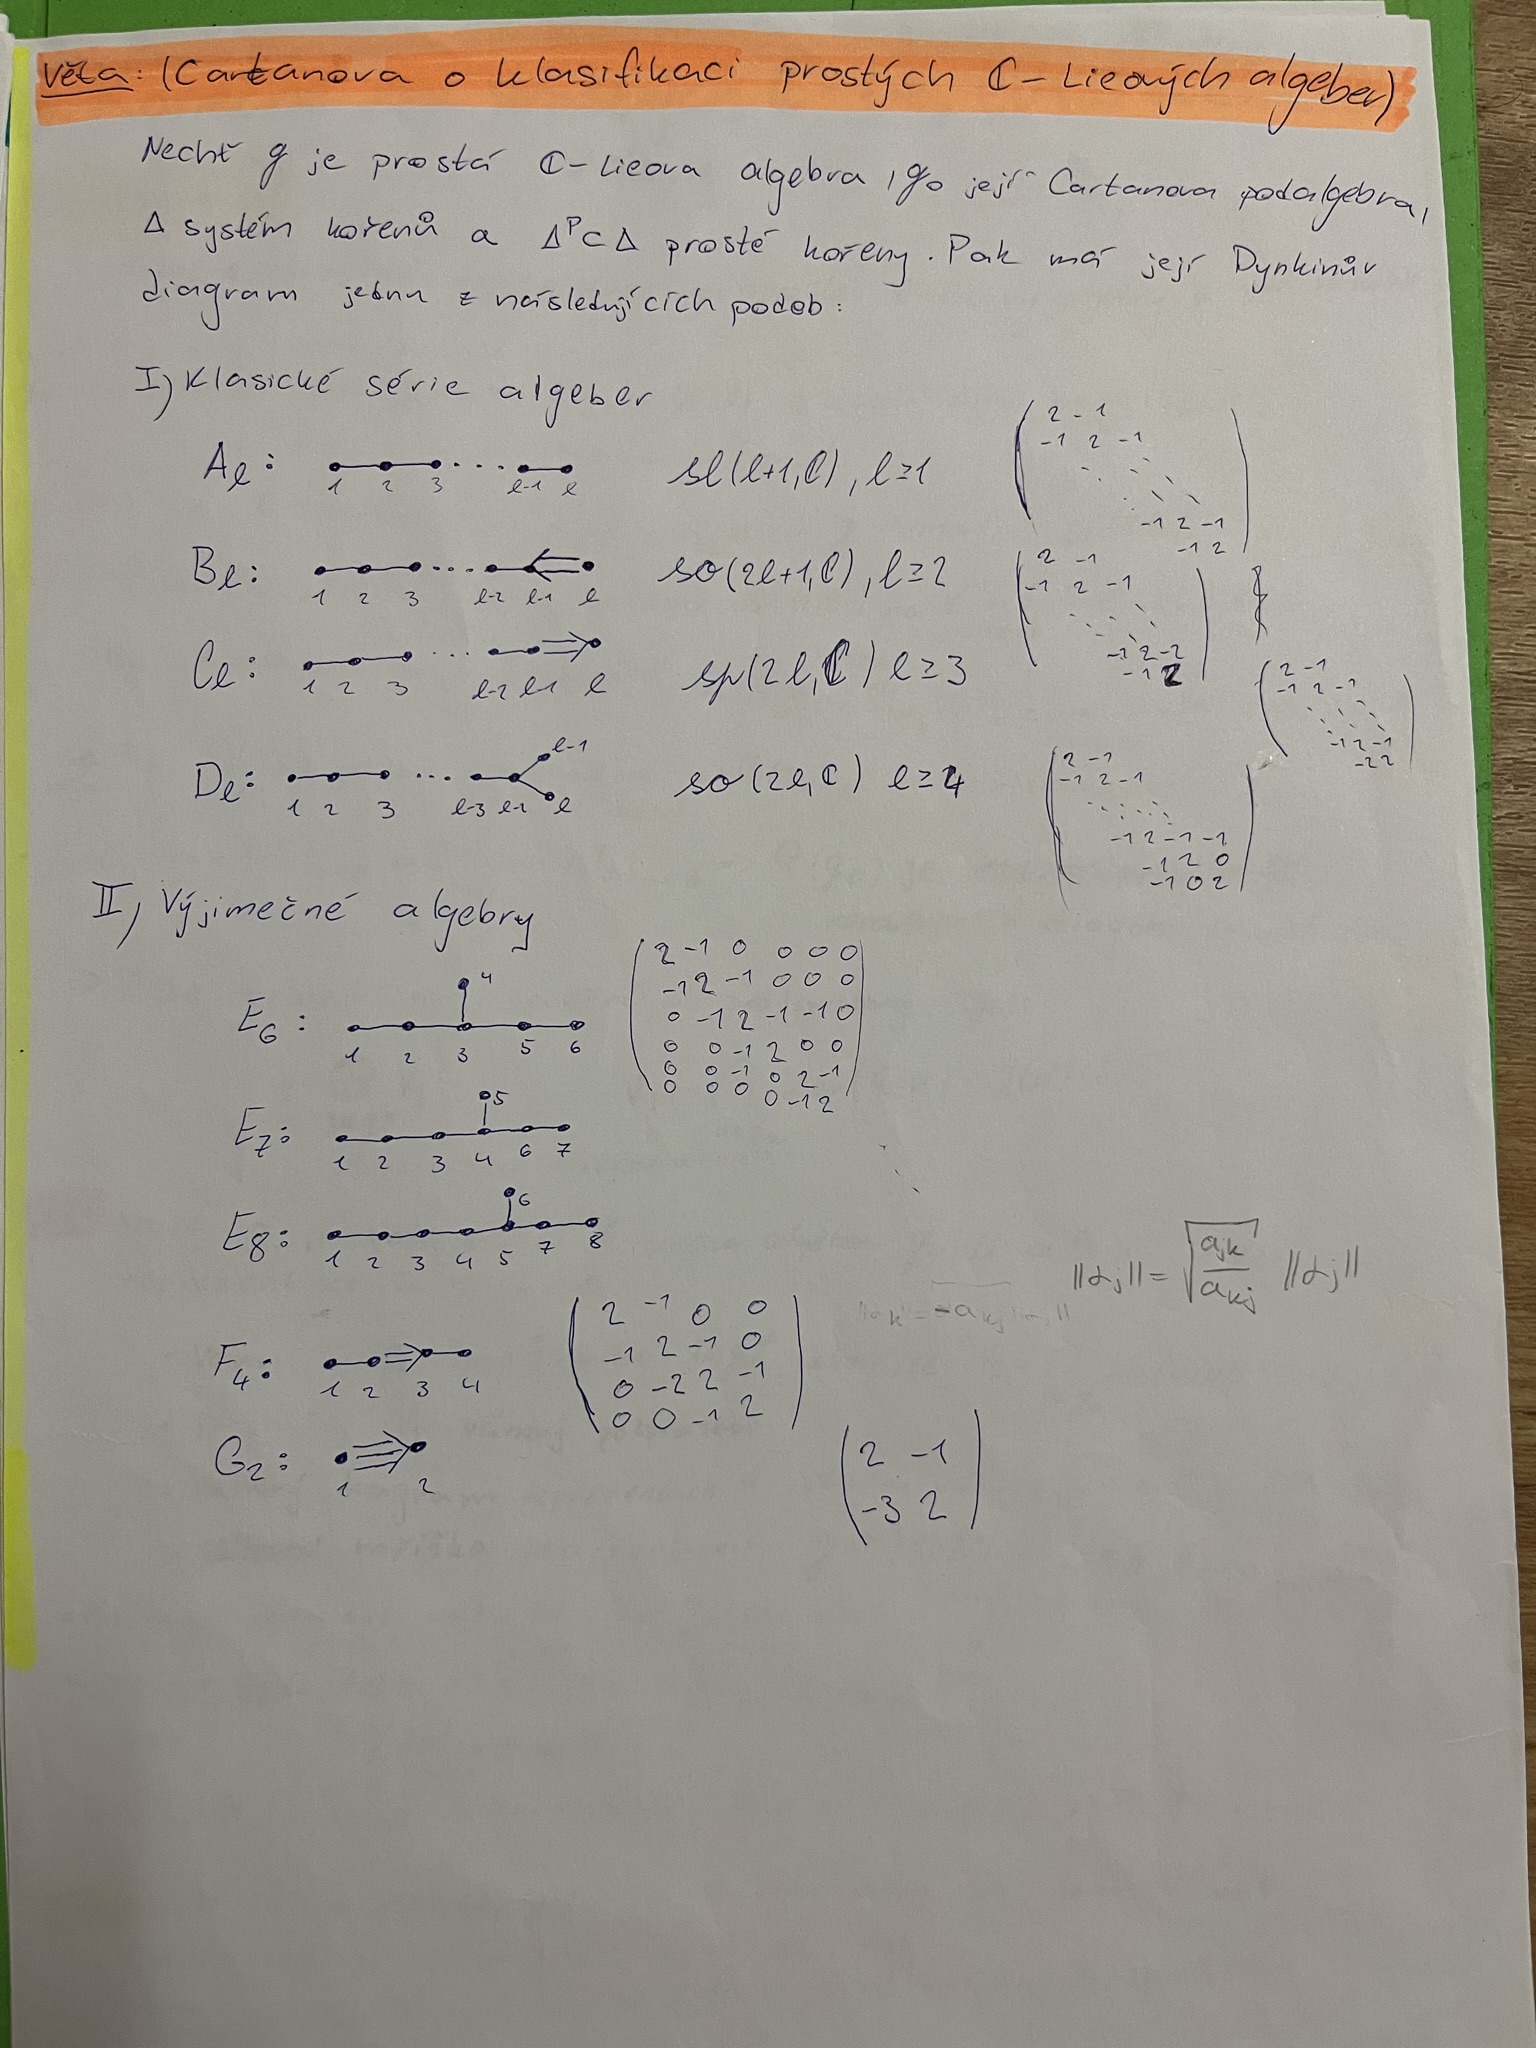 Věta: (Cartanova o klasifikaci prostých ℂ-Lieových algeber)
Nechť g je prostá ℂ-Lieova algebra, g₀ její Cartanova podalgebra,
Δ systém kořenů a Δᴾ⊂Δ prosté kořeny. Pak má její Dynkinův
diagram jednu z následujících podob:
I) Klasické série algeber
Aℓ: 1 2 3 ... ℓ-1 ℓ sl(ℓ+1,ℂ), ℓ≥1
2 -1
-1 2 -1
-1 2 -1
-1 2
Bℓ: 1 2 3 ... ℓ-2 ℓ-1 ℓ so(2ℓ+1,ℂ), ℓ≥2
2 -1
-1 2 -1
-1 2 -2
-1 2
Cℓ: 1 2 3 ... ℓ-2 ℓ-1 ℓ sp(2ℓ,ℂ) ℓ≥3
2 -1
-1 2 -1
-1 2 -1
-2 2
Dℓ: 1 2 3 ... ℓ-3 ℓ-2 ℓ-1 ℓ so(2ℓ,ℂ) ℓ≥4
2 -1
-1 2 -1
-1 2 -1 -1
-1 2 0
-1 0 2
II) Výjimečné algebry
E₆: 1 2 3 4 5 6
2 -1 0 0 0 0
-1 2 -1 0 0 0
0 -1 2 -1 -1 0
0 0 -1 2 0 0
0 0 -1 0 2 -1
0 0 0 0 -1 2
E₇: 1 2 3 4 5 6 7
E8: 1 2 3 4 5 6 7 8
||αⱼ|| = √(aⱼₖ/aₖⱼ) ||αⱼ||
F₄: 1 2 3 4
2 -1 0 0
-1 2 -1 0
0 -2 2 -1
0 0 -1 2
G₂: 1 2
2 -1
-3 2